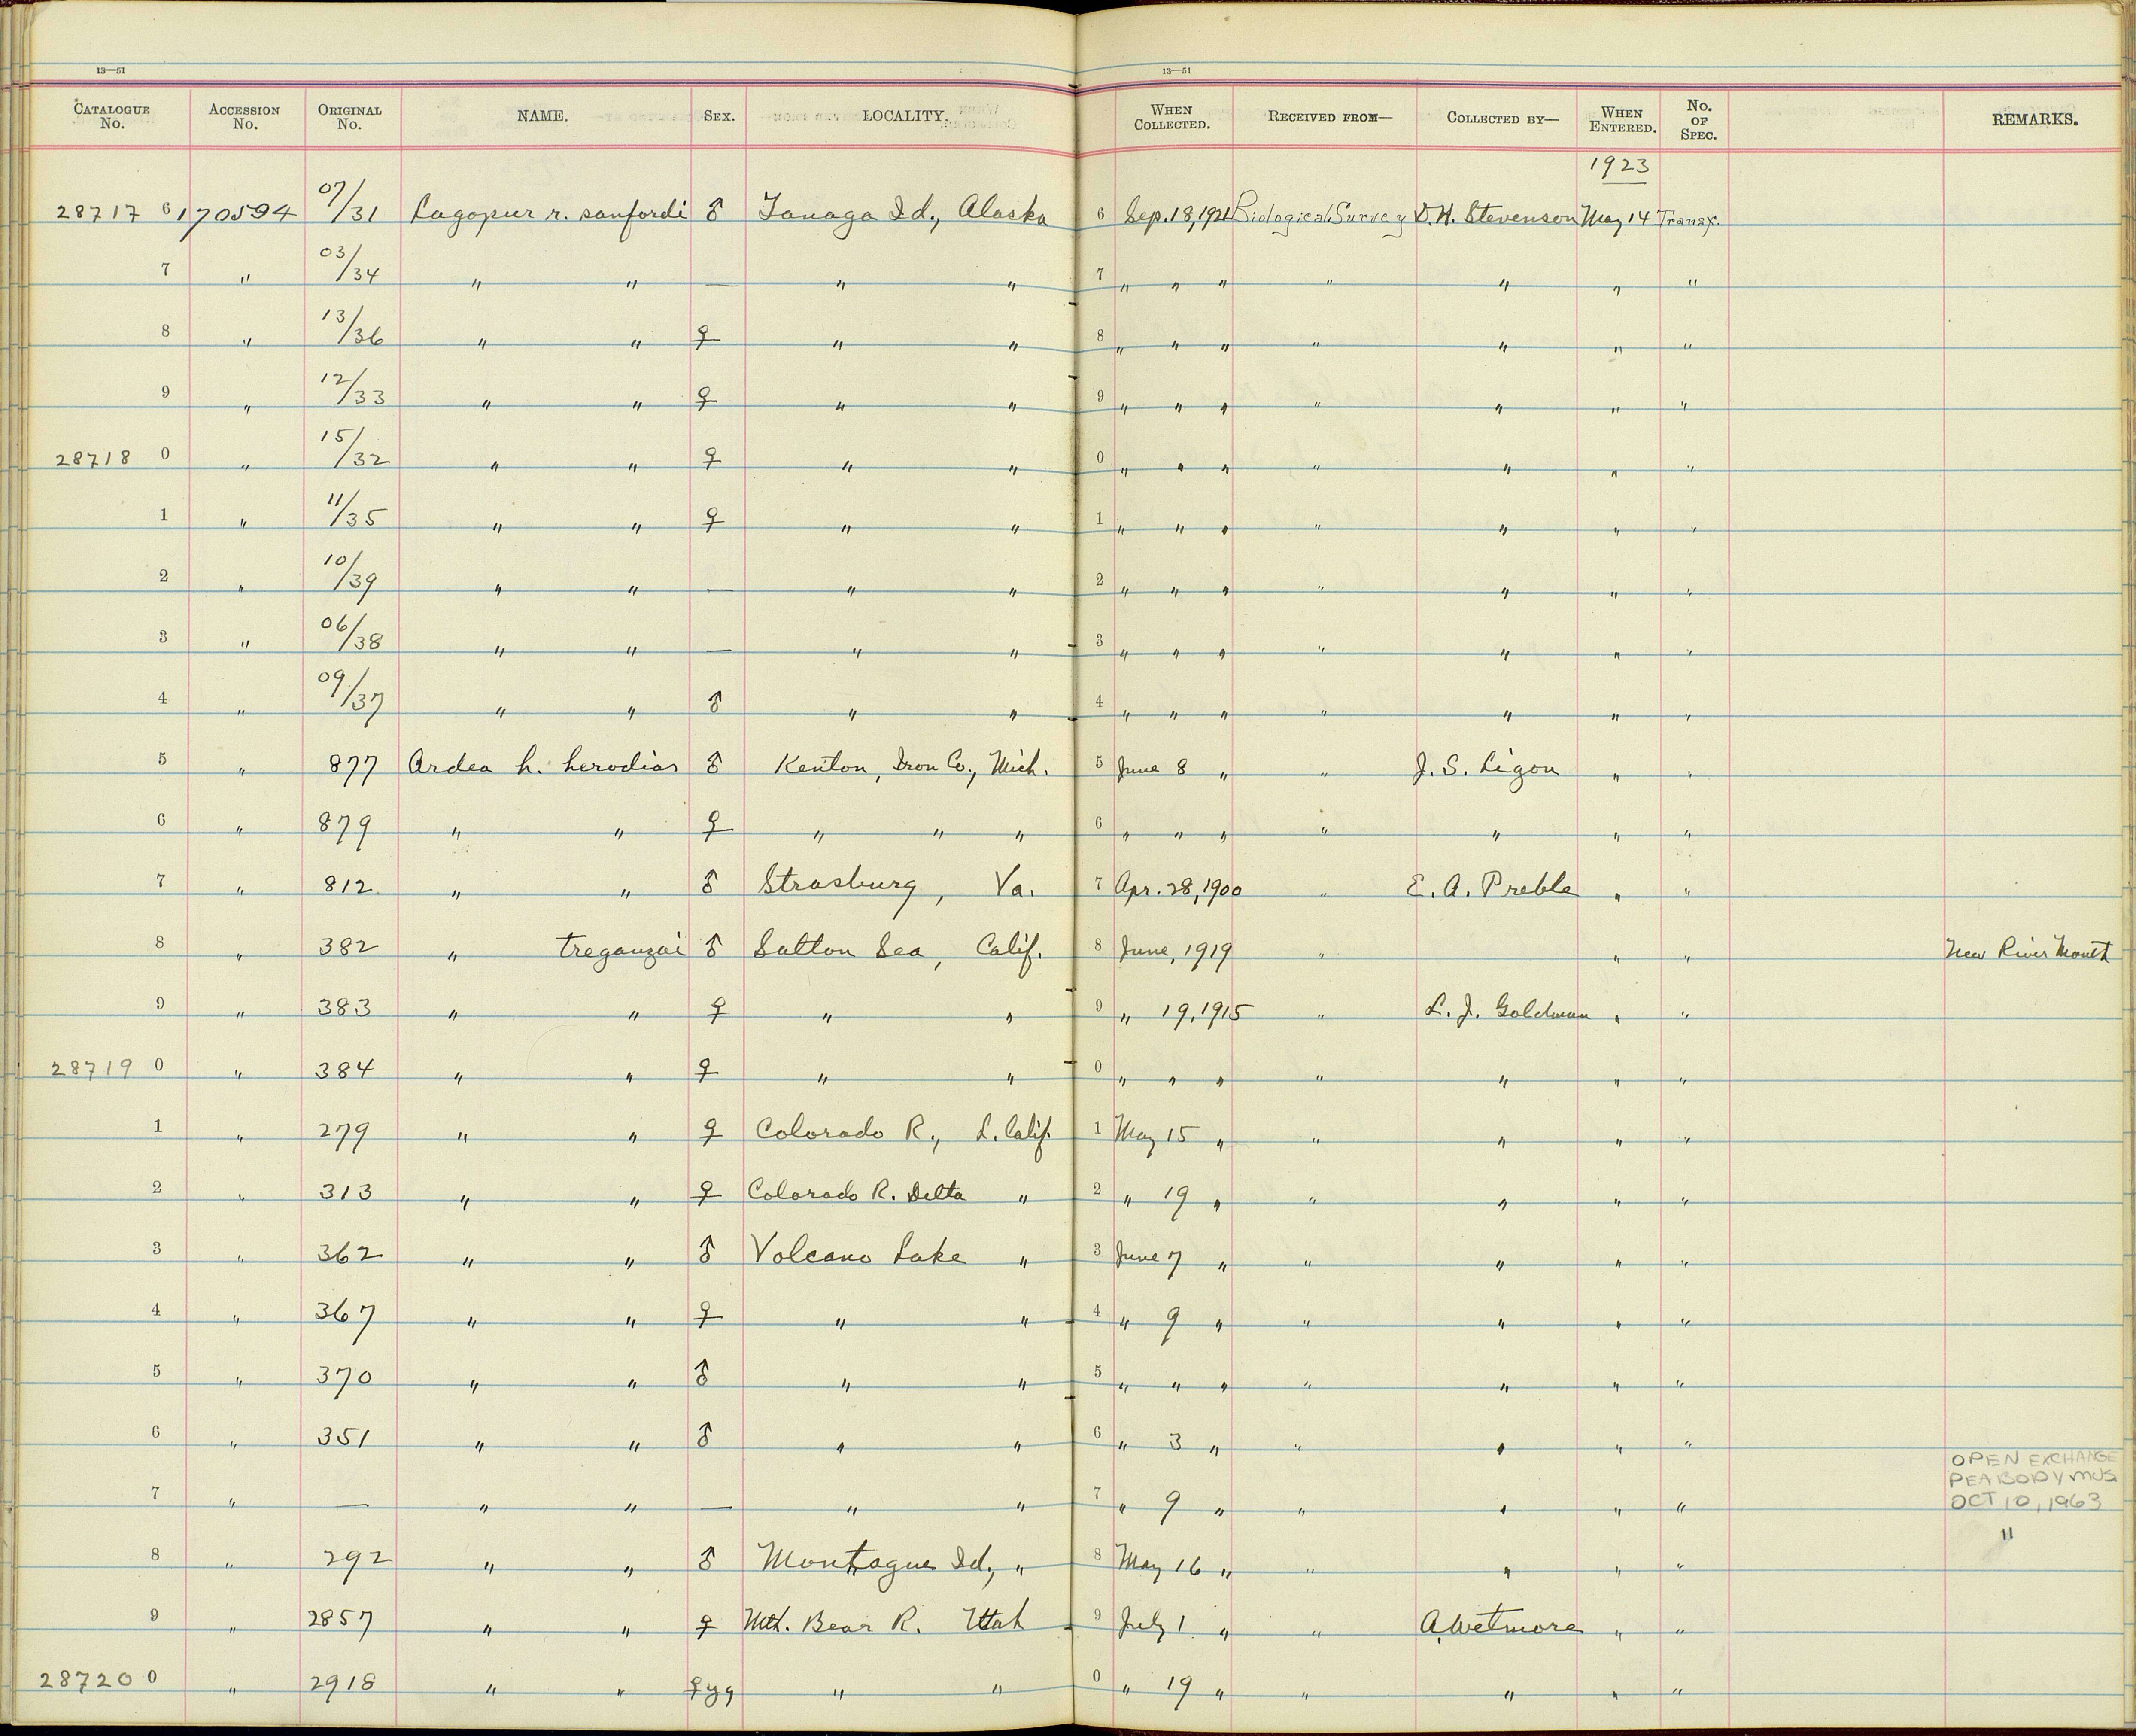 13—51 13—51
CATALOGUE No. ACCESSION No. ORIGINAL No. NAME. SEX. LOCALITY. WHEN COLLECTED. RECEIVED FROM— COLLECTED BY— WHEN ENTERED. No. OF SPEC. REMARKS.
1923
28717 6 170594 07/31 Lagopus r. sanfordi ♂ Tanaga Id., Alaska 6 Sep. 18, 1921 Biological Survey D. H. Stevenson May 14 Transf.
7 " 03/34 " " — " " 7 " " " " " " "
8 " 13/36 " " ♀ " " 8 " " " " " " "
9 " 12/33 " " ♀ " " 9 " " " " " " "
28718 0 " 15/32 " " ♀ " " 0 " " " " " " "
1 " 11/35 " " ♀ " " 1 " " " " " " "
2 " 10/39 " " — " " 2 " " " " " " "
3 " 06/38 " " — " " 3 " " " " " " "
4 " 09/37 " " ♂ " " 4 " " " " " " "
5 " 877 Ardea h. herodias ♂ Kenton, Iron Co., Mich. 5 June 8 " " J. S. Ligon " "
6 " 879 " " ♀ " " " 6 " " " " " " "
7 " 812 " " ♂ Strasburg, Va. 7 Apr. 28, 1900 " E. A. Preble " "
8 " 382 " treganzai ♂ Salton Sea, Calif. 8 June, 1919 " " " New River Mouth
9 " 383 " " ♀ " " 9 " 19, 1915 " L. J. Goldman " "
28719 0 " 384 " " ♀ " " 0 " " " " " " "
1 " 279 " " ♀ Colorado R., L. Calif. 1 May 15 " " " " "
2 " 313 " " ♀ Colorado R. Delta " 2 " 19 " " " " "
3 " 362 " " ♂ Volcano Lake " 3 June 7 " " " " "
4 " 367 " " ♀ " " 4 " 9 " " " " "
5 " 370 " " ♂ " " 5 " " " " " " "
6 " 351 " " ♂ " " 6 " 3 " " " " "
OPEN EXCHANGE
PEABODY MUS
7 " — " " — " " 7 " 9 " " " " " OCT 10, 1963
8 " 292 " " ♂ Montague Id., " 8 May 16 " " " " " "
9 " 2857 " " ♀ Mth. Bear R. Utah 9 July 1 " " A. Wetmore " "
28720 0 " 2918 " " ♀ yg " " 0 " 19 " " " " "